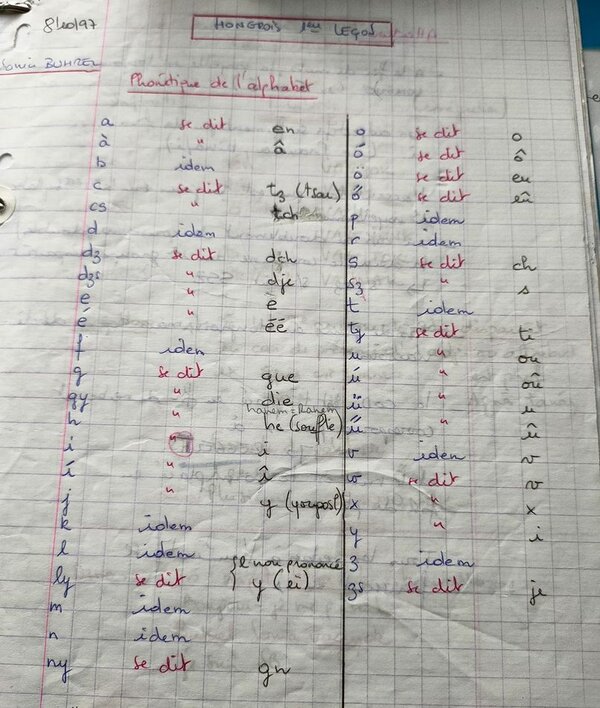 8/10/97
HONGROIS 1ère LEÇON
Phonétique de l'alphabet
a se dit en
à " â
b idem
c se dit tz (tsou)
cs " tch
d idem
dz se dit dch
dzs " dje
e " è
é " éé
f idem
g se dit gue
gy " die
hanem = Ranem
h " he (souflé)
i " i
í " î
j " y (youpost)
k idem
l idem
ly se dit } l non prononcé
y (eï)
m idem
n idem
ny se dit gn
o se dit o
ó se dit ô
ö se dit eu
ő se dit eû
p idem
r idem
s se dit ch
sz " s
t idem
ty se dit ti
u " ou
ú " oû
ü " u
ű " û
v idem v
w se dit v
x " x
y " i
z idem
zs se dit je